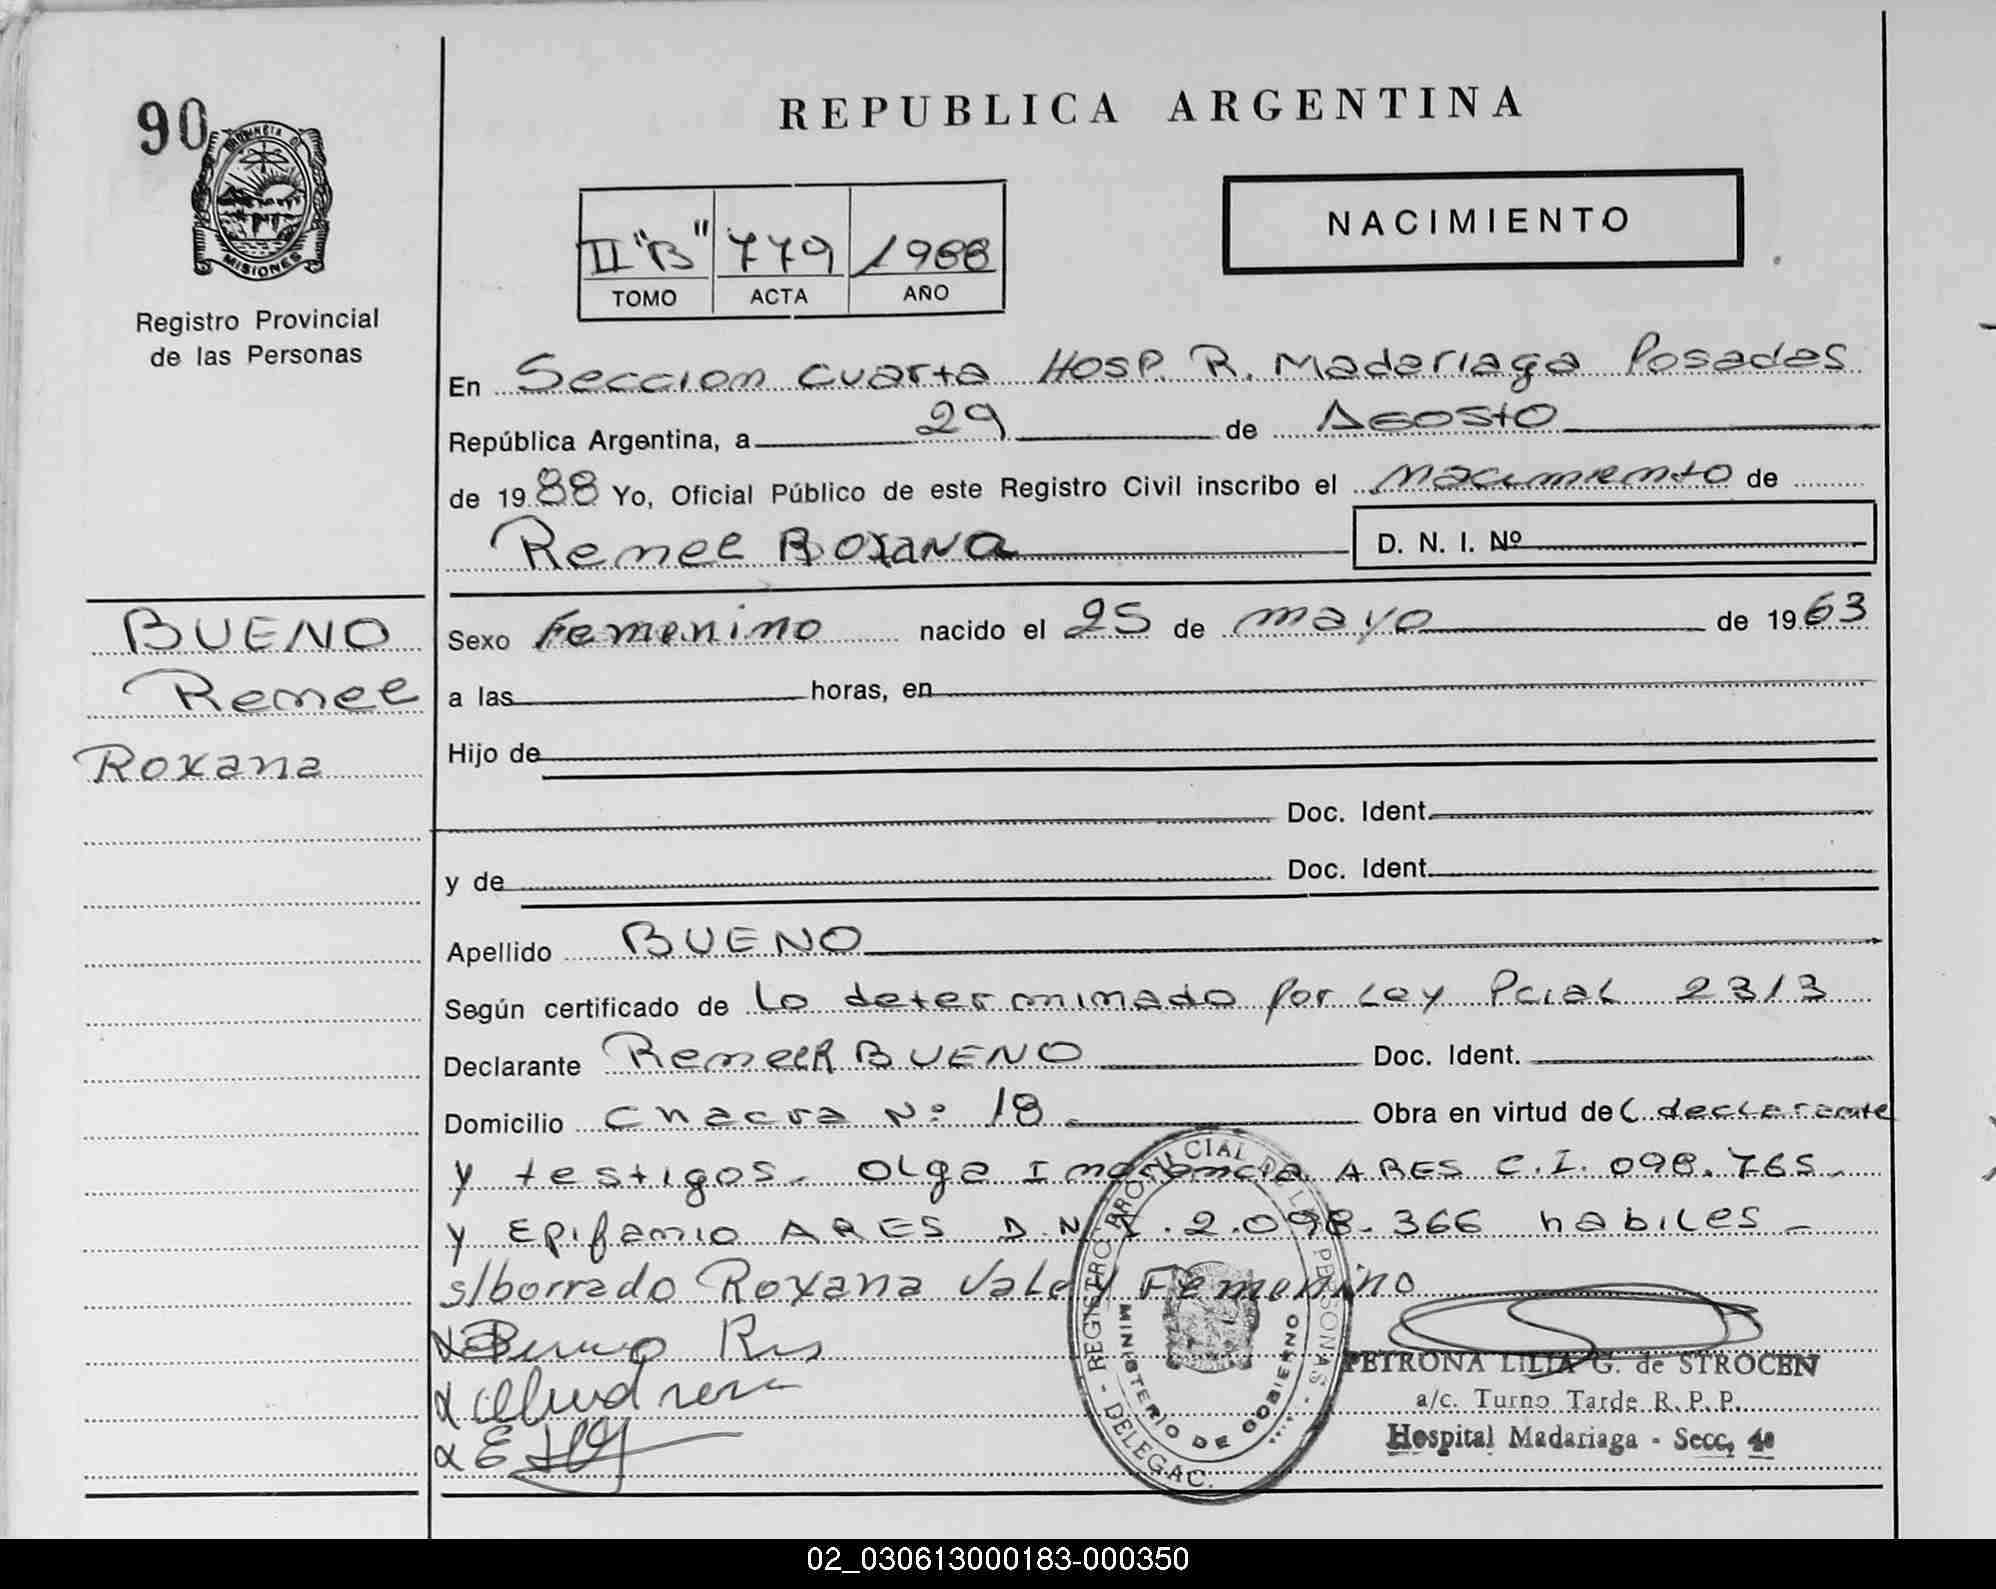 90
PROVINCIA DE
MISIONES
Registro Provincial
de las Personas
REPUBLICA ARGENTINA
NACIMIENTO
II "B" 779 1988
TOMO ACTA AÑO
En Seccion Cuarta Hosp. R. Madariaga Posadas
República Argentina, a 29 de Agosto
de 1988 Yo, Oficial Público de este Registro Civil inscribo el Nacimiento de
Renee Roxana D. N. I. Nº
BUENO
Renee
Roxana
Sexo Femenino nacido el 25 de mayo de 1963
a las horas, en
Hijo de
Doc. Ident.
y de Doc. Ident.
Apellido BUENO
Según certificado de Lo determinado por Ley Pcial 2313
Declarante Renee R BUENO Doc. Ident.
Domicilio Chacra Nº 18 Obra en virtud de L. declarante
y testigos. Olga ARES C.I. 098.765
y Epifanio ARES D.N.I. 2.098.366 habiles
s/borrado Roxana Vale y Femenino
REGISTRO PROVINCIAL DE LAS PERSONAS - DELEGAC.
MINISTERIO DE GOBIERNO
PETRONA LILIA G. de STROCEN
a/c. Turno Tarde R. P. P.
Hospital Madariaga - Secc. 4ª
02_030613000183-000350